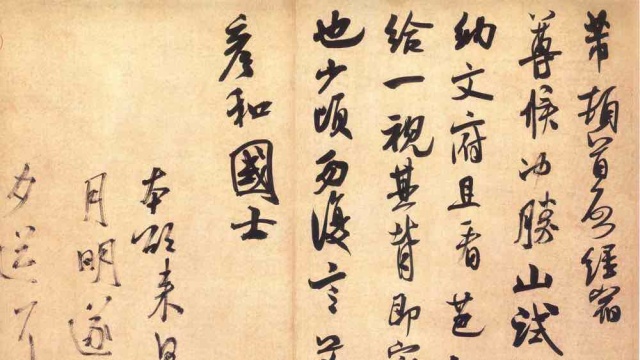 芾頓首啓經宿
尊候沖勝山試
納文府且看芭
給一視其背即定
也少頃勿復言芾
彥和國士
本欲來日
月明遂
夕送耳